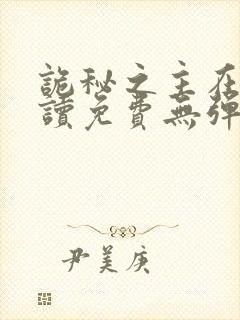 詭秘之主在
讀免費無彈
尹美庚